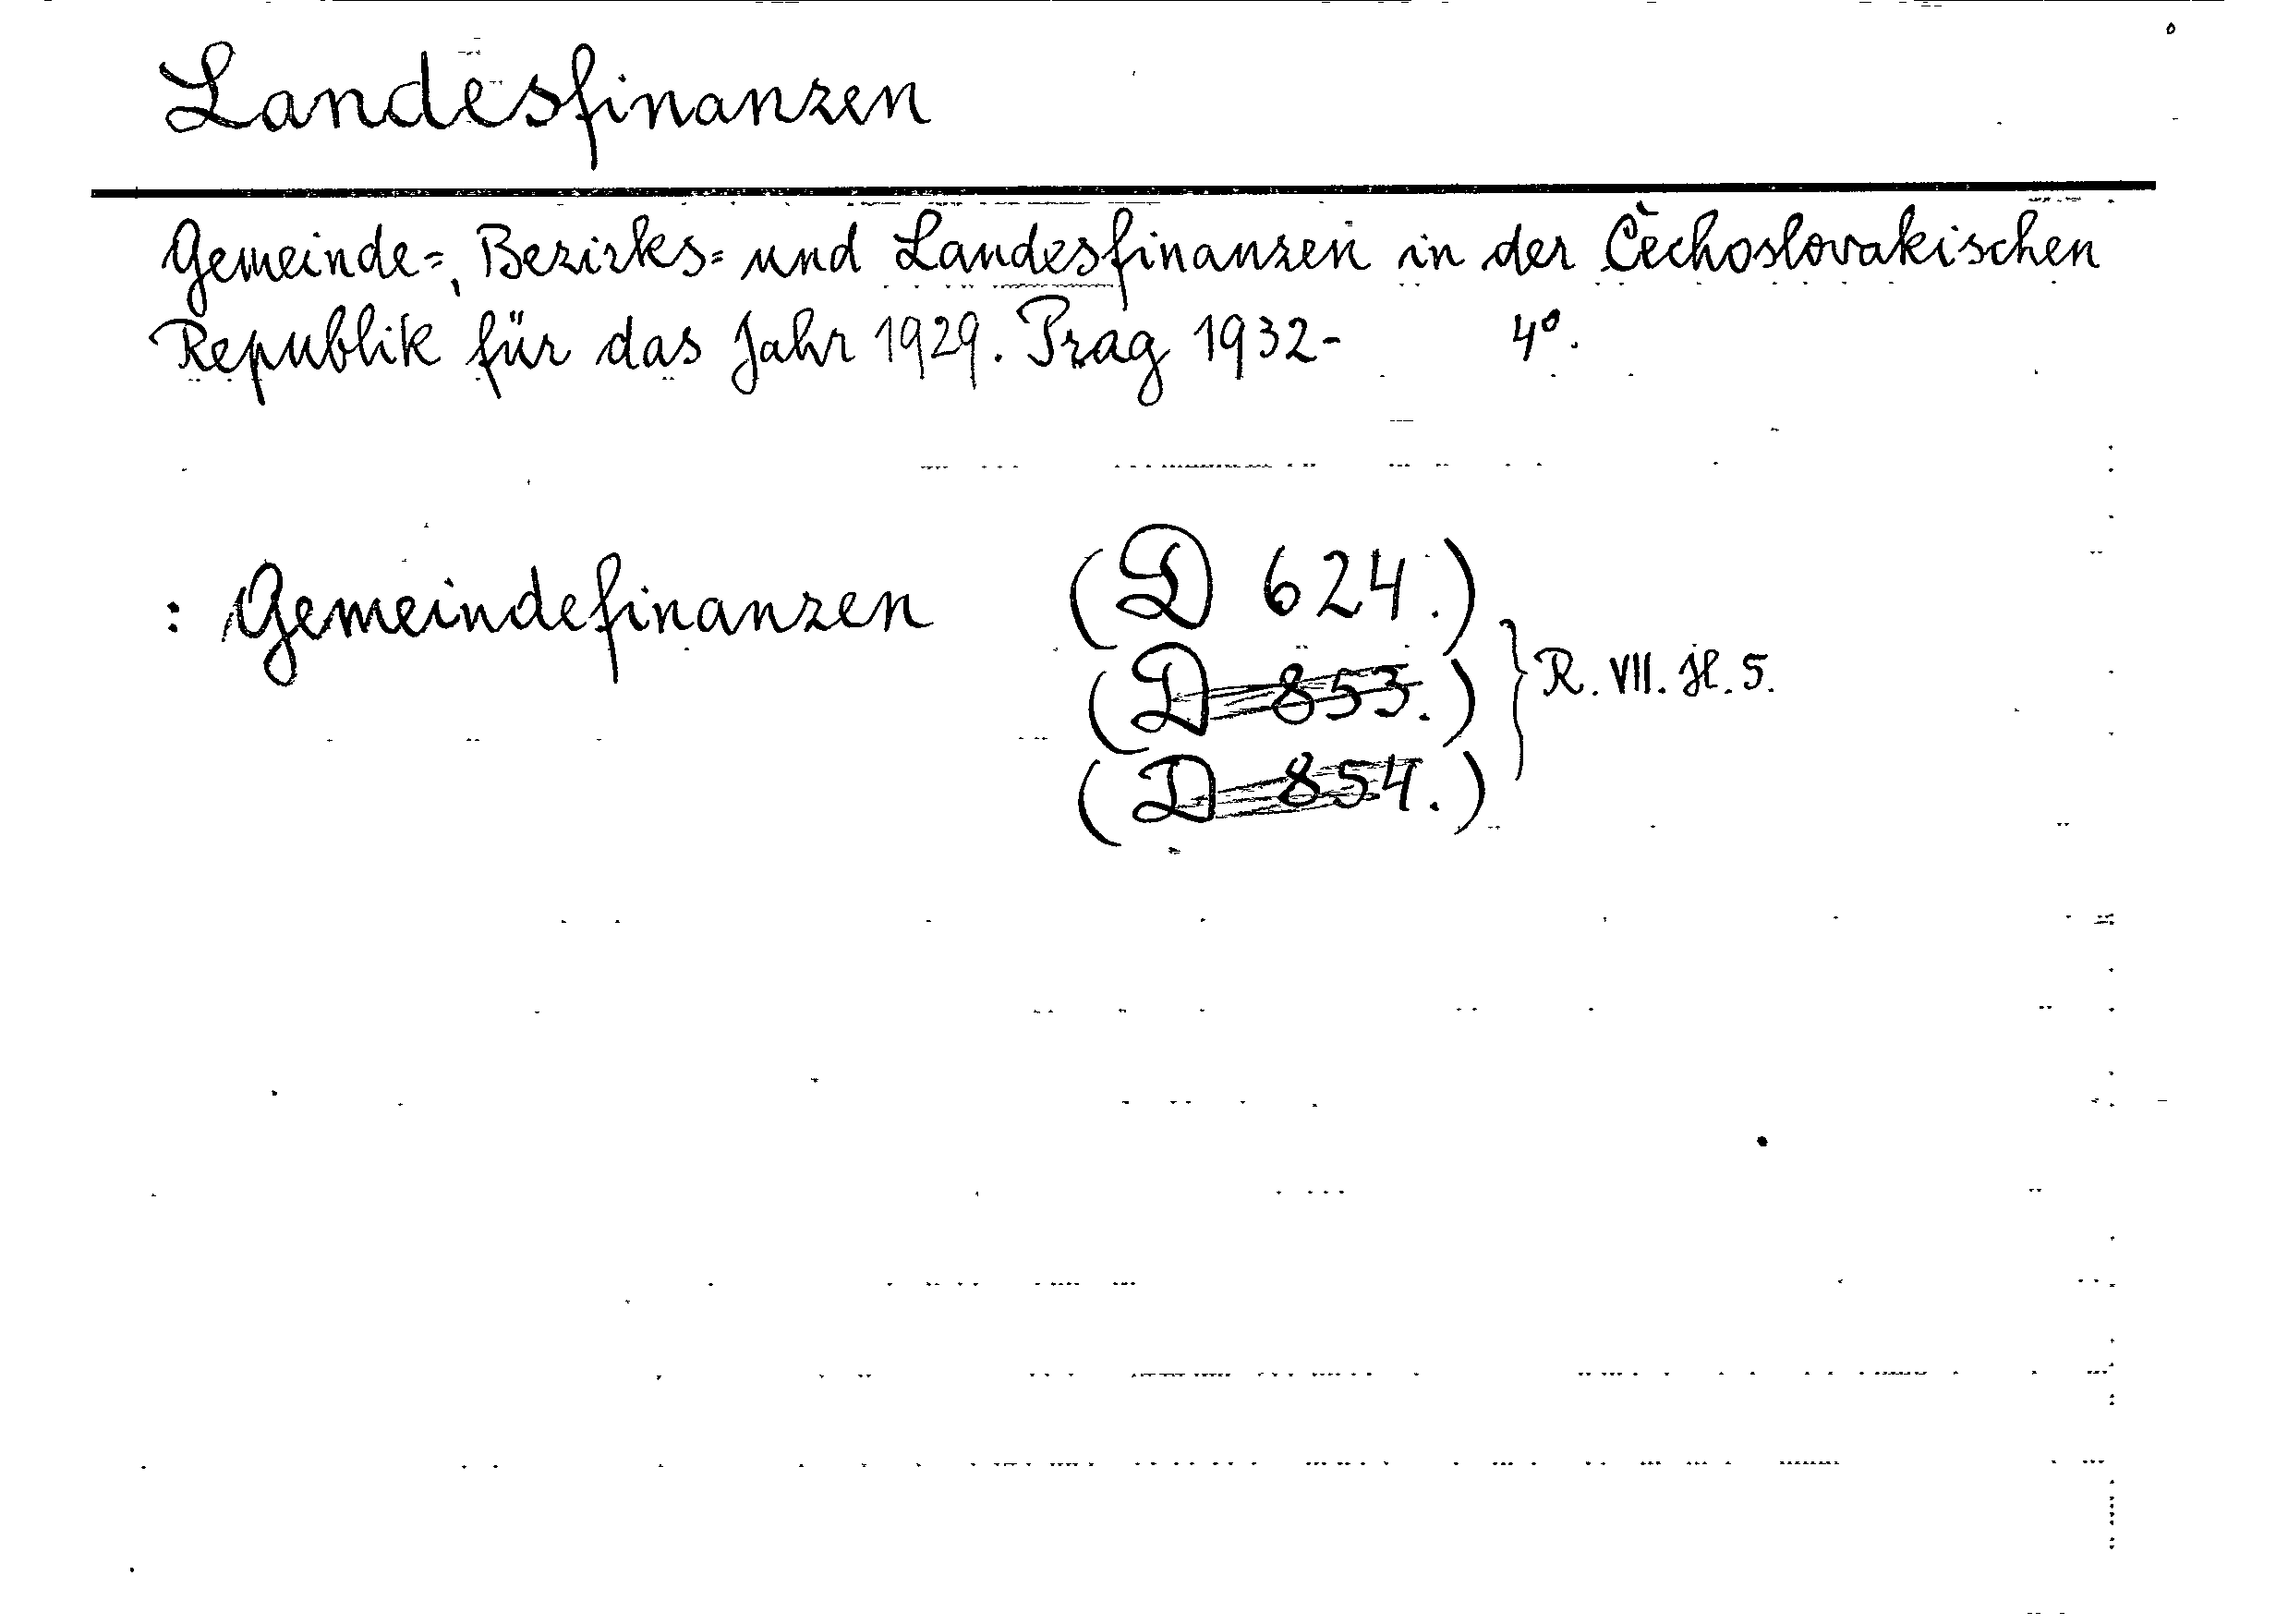 Landesfinanzen
Gemeinde=, Bezirks= und Landesfinanzen in der Čechoslovakischen
Republik für das Jahr 1929. Prag 1932- 4º.
: Gemeindefinanzen (D 624.)
(D 853.)
R. VII. H. 5.
(D 854.)